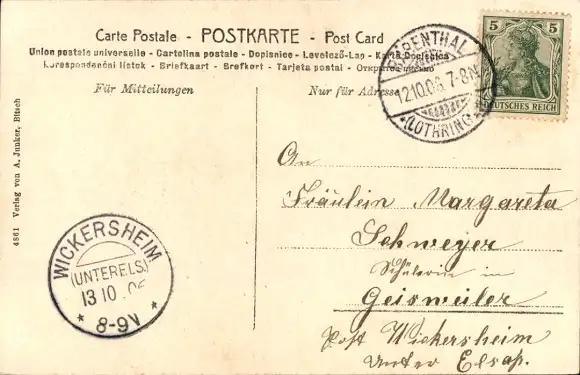 Carte Postale - POSTKARTE - Post Card
Union postale universelle - Cartolina postale - Dopisnice - Levelező-Lap - Karta
Korespondenční listek - Briefkaart - Brefkort - Tarjeta postal -
Für Mitteilungen
Nur für Adresse
12.10.06. 7-8N
* (LOTHRING) *
5 5
DEUTSCHES REICH
4861 Verlag von A. Junker, Bitsch
An
Fräulein Margareta
Schweyer
Schülerin in
Geisweiler
Post Wickersheim
Unter Elsaß.
WICKERSHEIM
(UNTERELS.)
13 10 06
* 8-9V *